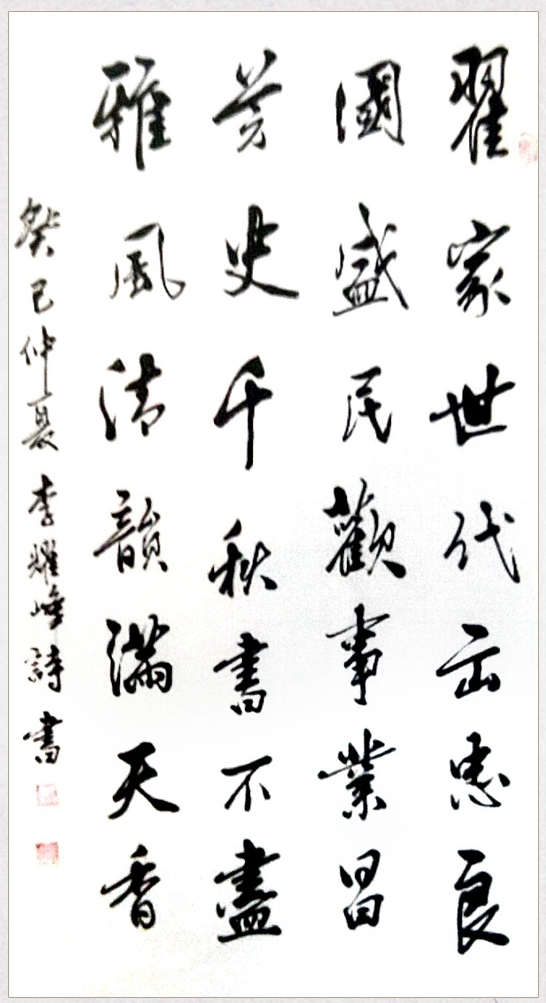 翟家世代出忠良
國盛民歡事業昌
芳史千秋書不盡
雅風清韻滿天香
癸巳仲夏李耀峰詩書